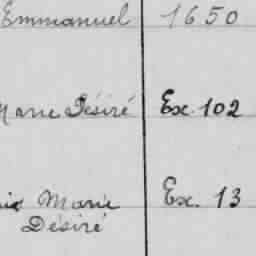 Emmanuel 1650
Marie Désiré Ex. 102
Marie Ex. 13
Désiré